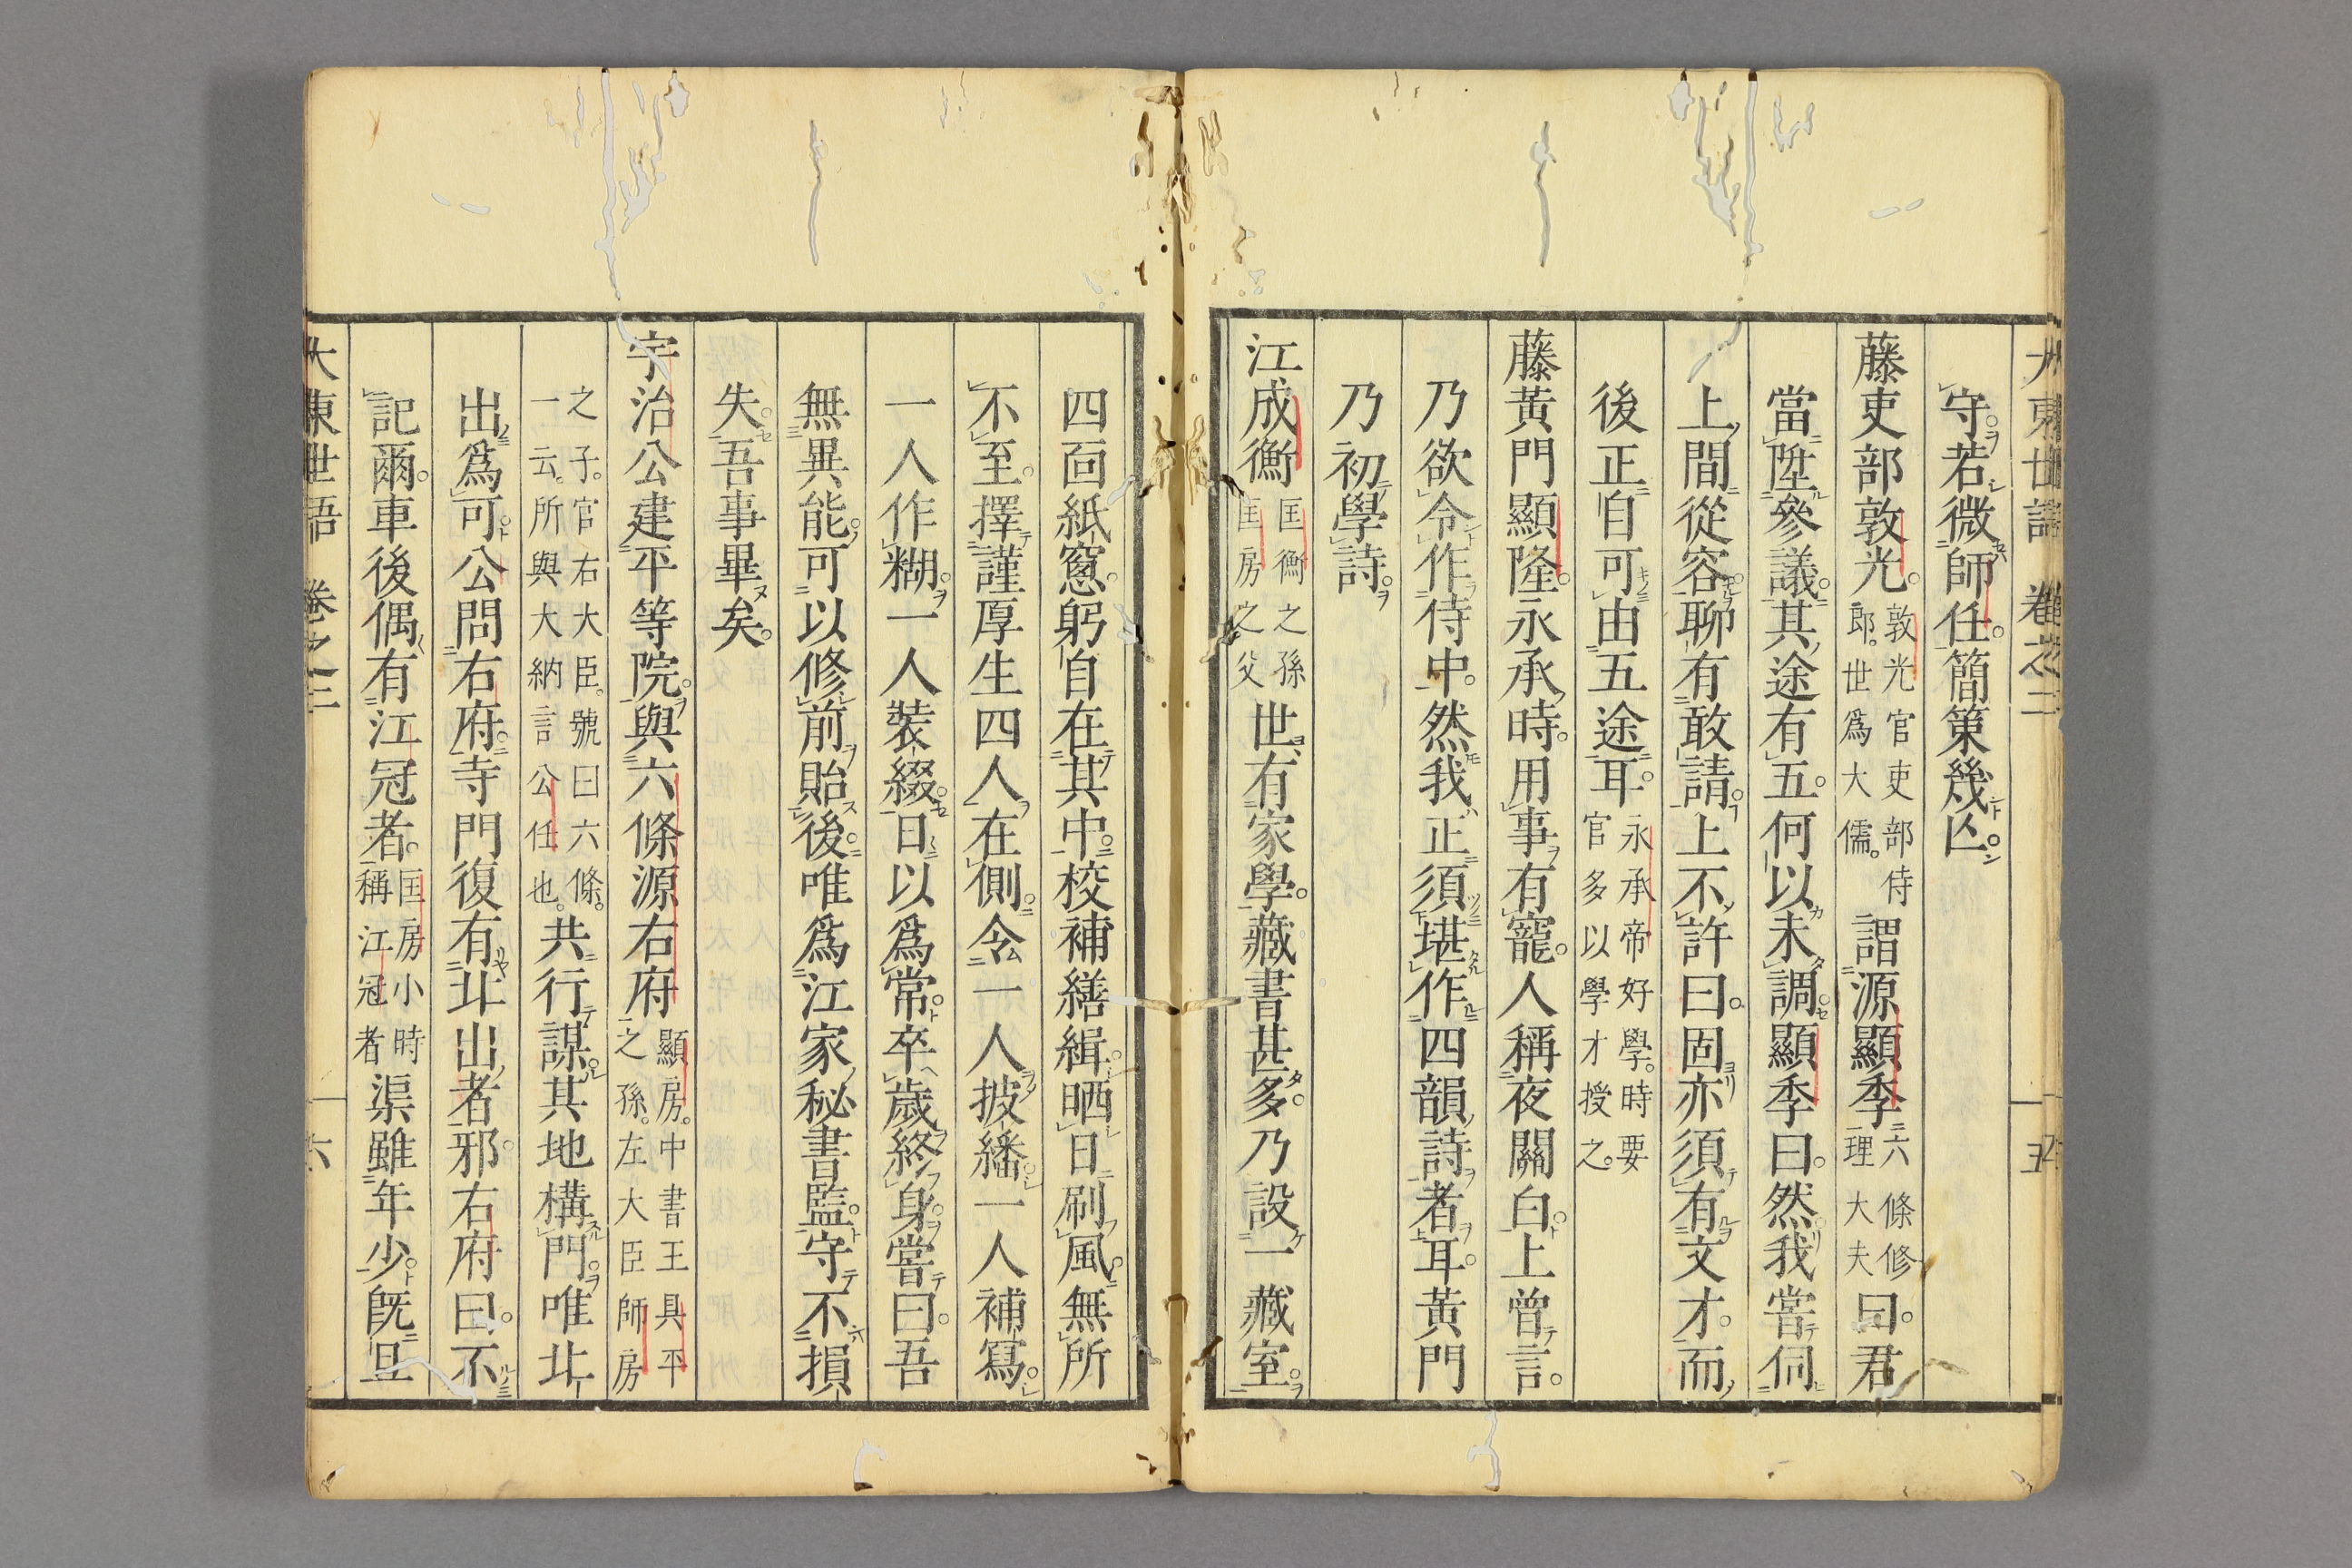 大東世語　卷之二　五
守若微師任簡策幾亾
藤吏部敦光敦光官吏部侍郎世爲大儒謂源顯季六條修理大夫曰君
當陞參議其途有五何以未調顯季曰然我嘗伺
上間從容聊有敢請上不許曰固亦須有文才而
後正自可由五途耳永承帝好學時要官多以學才授之
藤黃門顯隆永承時用事有寵人稱夜關白上曾言
乃欲令作侍中然我正須堪作四韻詩者耳黃門
乃初學詩
江成衡匡衡之孫匡房之父世有家學藏書甚多乃設一藏室
四面紙窓躬自在其中校補繕緝晒日刷風無所
不至擇謹厚生四人在側令一人披繙一人補寫
一人作糊一人裝綴日以爲常卒歲終身嘗曰吾
無異能可以修前貽後唯爲江家秘書監守不損
失吾事畢矣
宇治公建平等院與六條源右府顯房中書王具平之孫左大臣師房
之子官右大臣號曰六條一云所與大納言公任也共行謀其地構門唯北
出爲可公問右府寺門復有北出者邪右府曰不
記爾車後偶有江冠者匡房小時稱江冠者渠雖年少既且
大東世語　卷之二　六